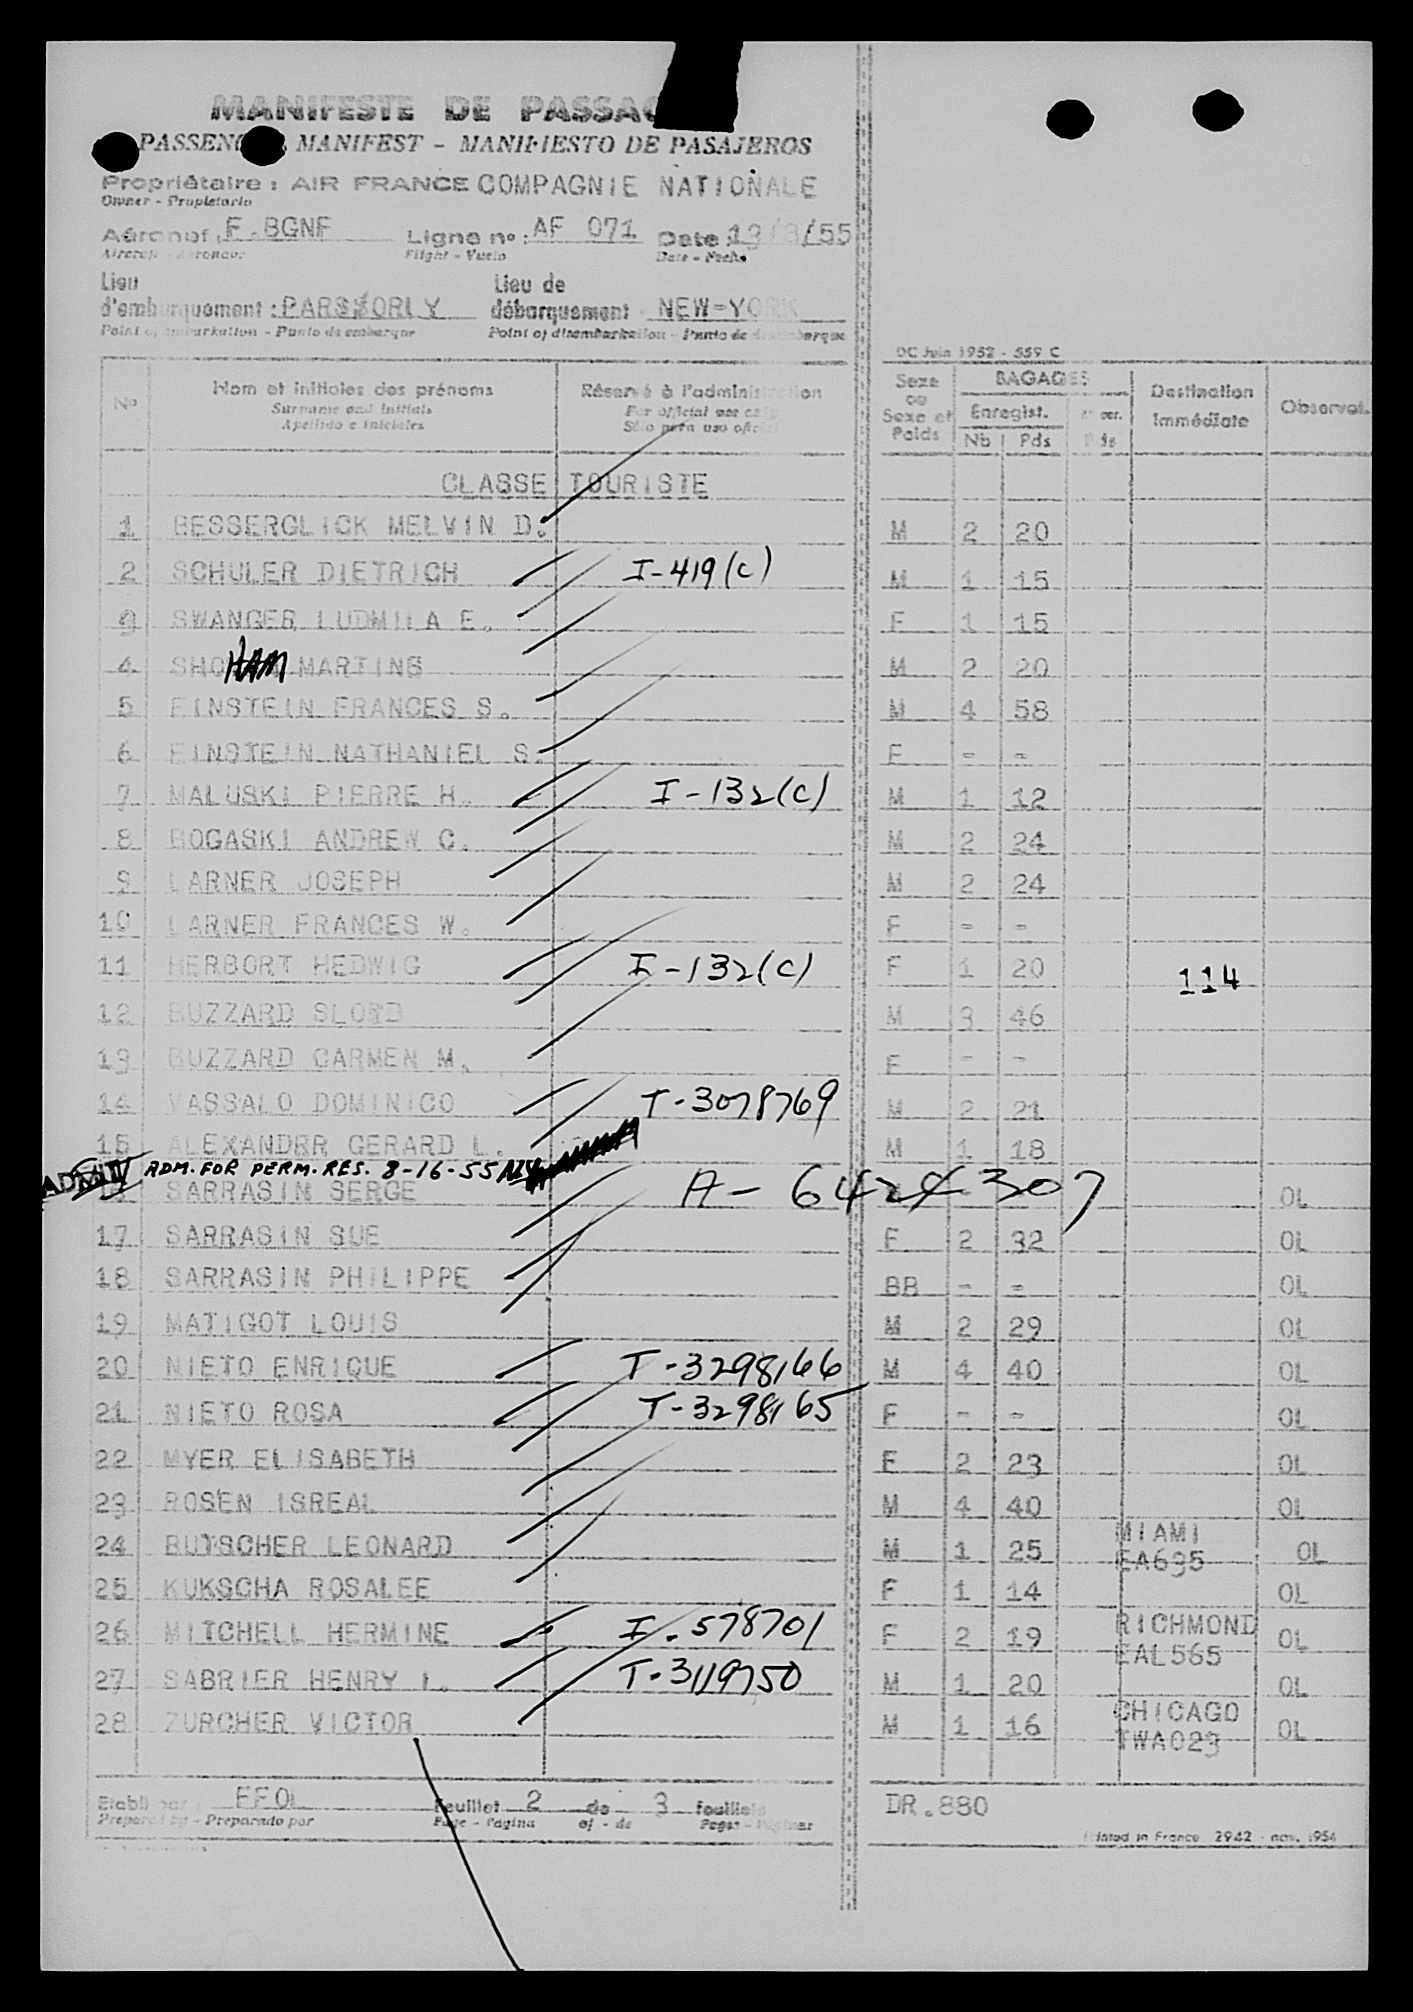 MANIFESTE DE PASSAG
PASSENGER MANIFEST - MANIFIESTO DE PASAJEROS
Propriétaire : AIR FRANCE COMPAGNIE NATIONALE
Owner - Propietario
Aéronef : F-BGNF Ligne n° : AF 071 Date 13/8/55
Aircraft - Aeronave Flight - Vuelo Date - Fecha
Lieu d'embarquement : PARSSORLY Lieu de débarquement NEW-YORK
Point of embarkation - Punto de embarque Point of disembarkation - Punto de desembarque
DC Juin 1952 - 559 C
N° Nom et initiales des prénoms Réservé à l'administration Sexe ou Sexe et Poids BAGAGES Destination immédiate Observat.
Surname and initials For official use only Enregist.
Apellido e iniciales Sólo para uso oficial Nb Pds Pds
CLASSE TOURISTE
1 BESSERGLICK MELVIN D. M 2 20
2 SCHULER DIETRICH I-419(c) M 1 15
3 SWANGER LUDMILA E. F 1 15
4 SHOHAM MARTINS M 2 20
5 EINSTEIN FRANCES S. M 4 58
6 EINSTEIN NATHANIEL S. F - -
7 MALUSKI PIERRE H. I-132(c) M 1 12
8 BOGASKI ANDREW C. M 2 24
9 LARNER JOSEPH M 2 24
10 LARNER FRANCES W. F - -
11 HERBORT HEDWIG I-132(c) F 1 20 114
12 BUZZARD SLORD M 3 46
13 BUZZARD CARMEN M. F - -
14 VASSALO DOMINICO T-3078769 M 2 21
15 ALEXANDRR GERARD L. M 1 18
ADM IV ADM. FOR PERM. RES. 8-16-55 NY
SARRASIN SERGE A-6424307 OL
17 SARRASIN SUE F 2 32 OL
18 SARRASIN PHILIPPE BB - - OL
19 MATIGOT LOUIS M 2 29 OL
20 NIETO ENRIQUE T-3298166 M 4 40 OL
21 NIETO ROSA T-3298165 F - - OL
22 MYER ELISABETH F 2 23 OL
23 ROSEN ISREAL M 4 40 OL
24 BUTSCHER LEONARD M 1 25 MIAMI EA695 OL
25 KUKSCHA ROSALEE F 1 14 OL
26 MITCHELL HERMINE I-578701 F 2 19 RICHMOND EAL565 OL
27 SABRIER HENRY I. T-3119750 M 1 20 OL
28 ZURCHER VICTOR M 1 16 CHICAGO TWA023 OL
Etabli par : FFOL Feuillet 2 de 3 feuillets DR.880
Prepared by - Preparado por Page - Página of - de Pages - Páginas
Printed in France 2942 - nov. 1954